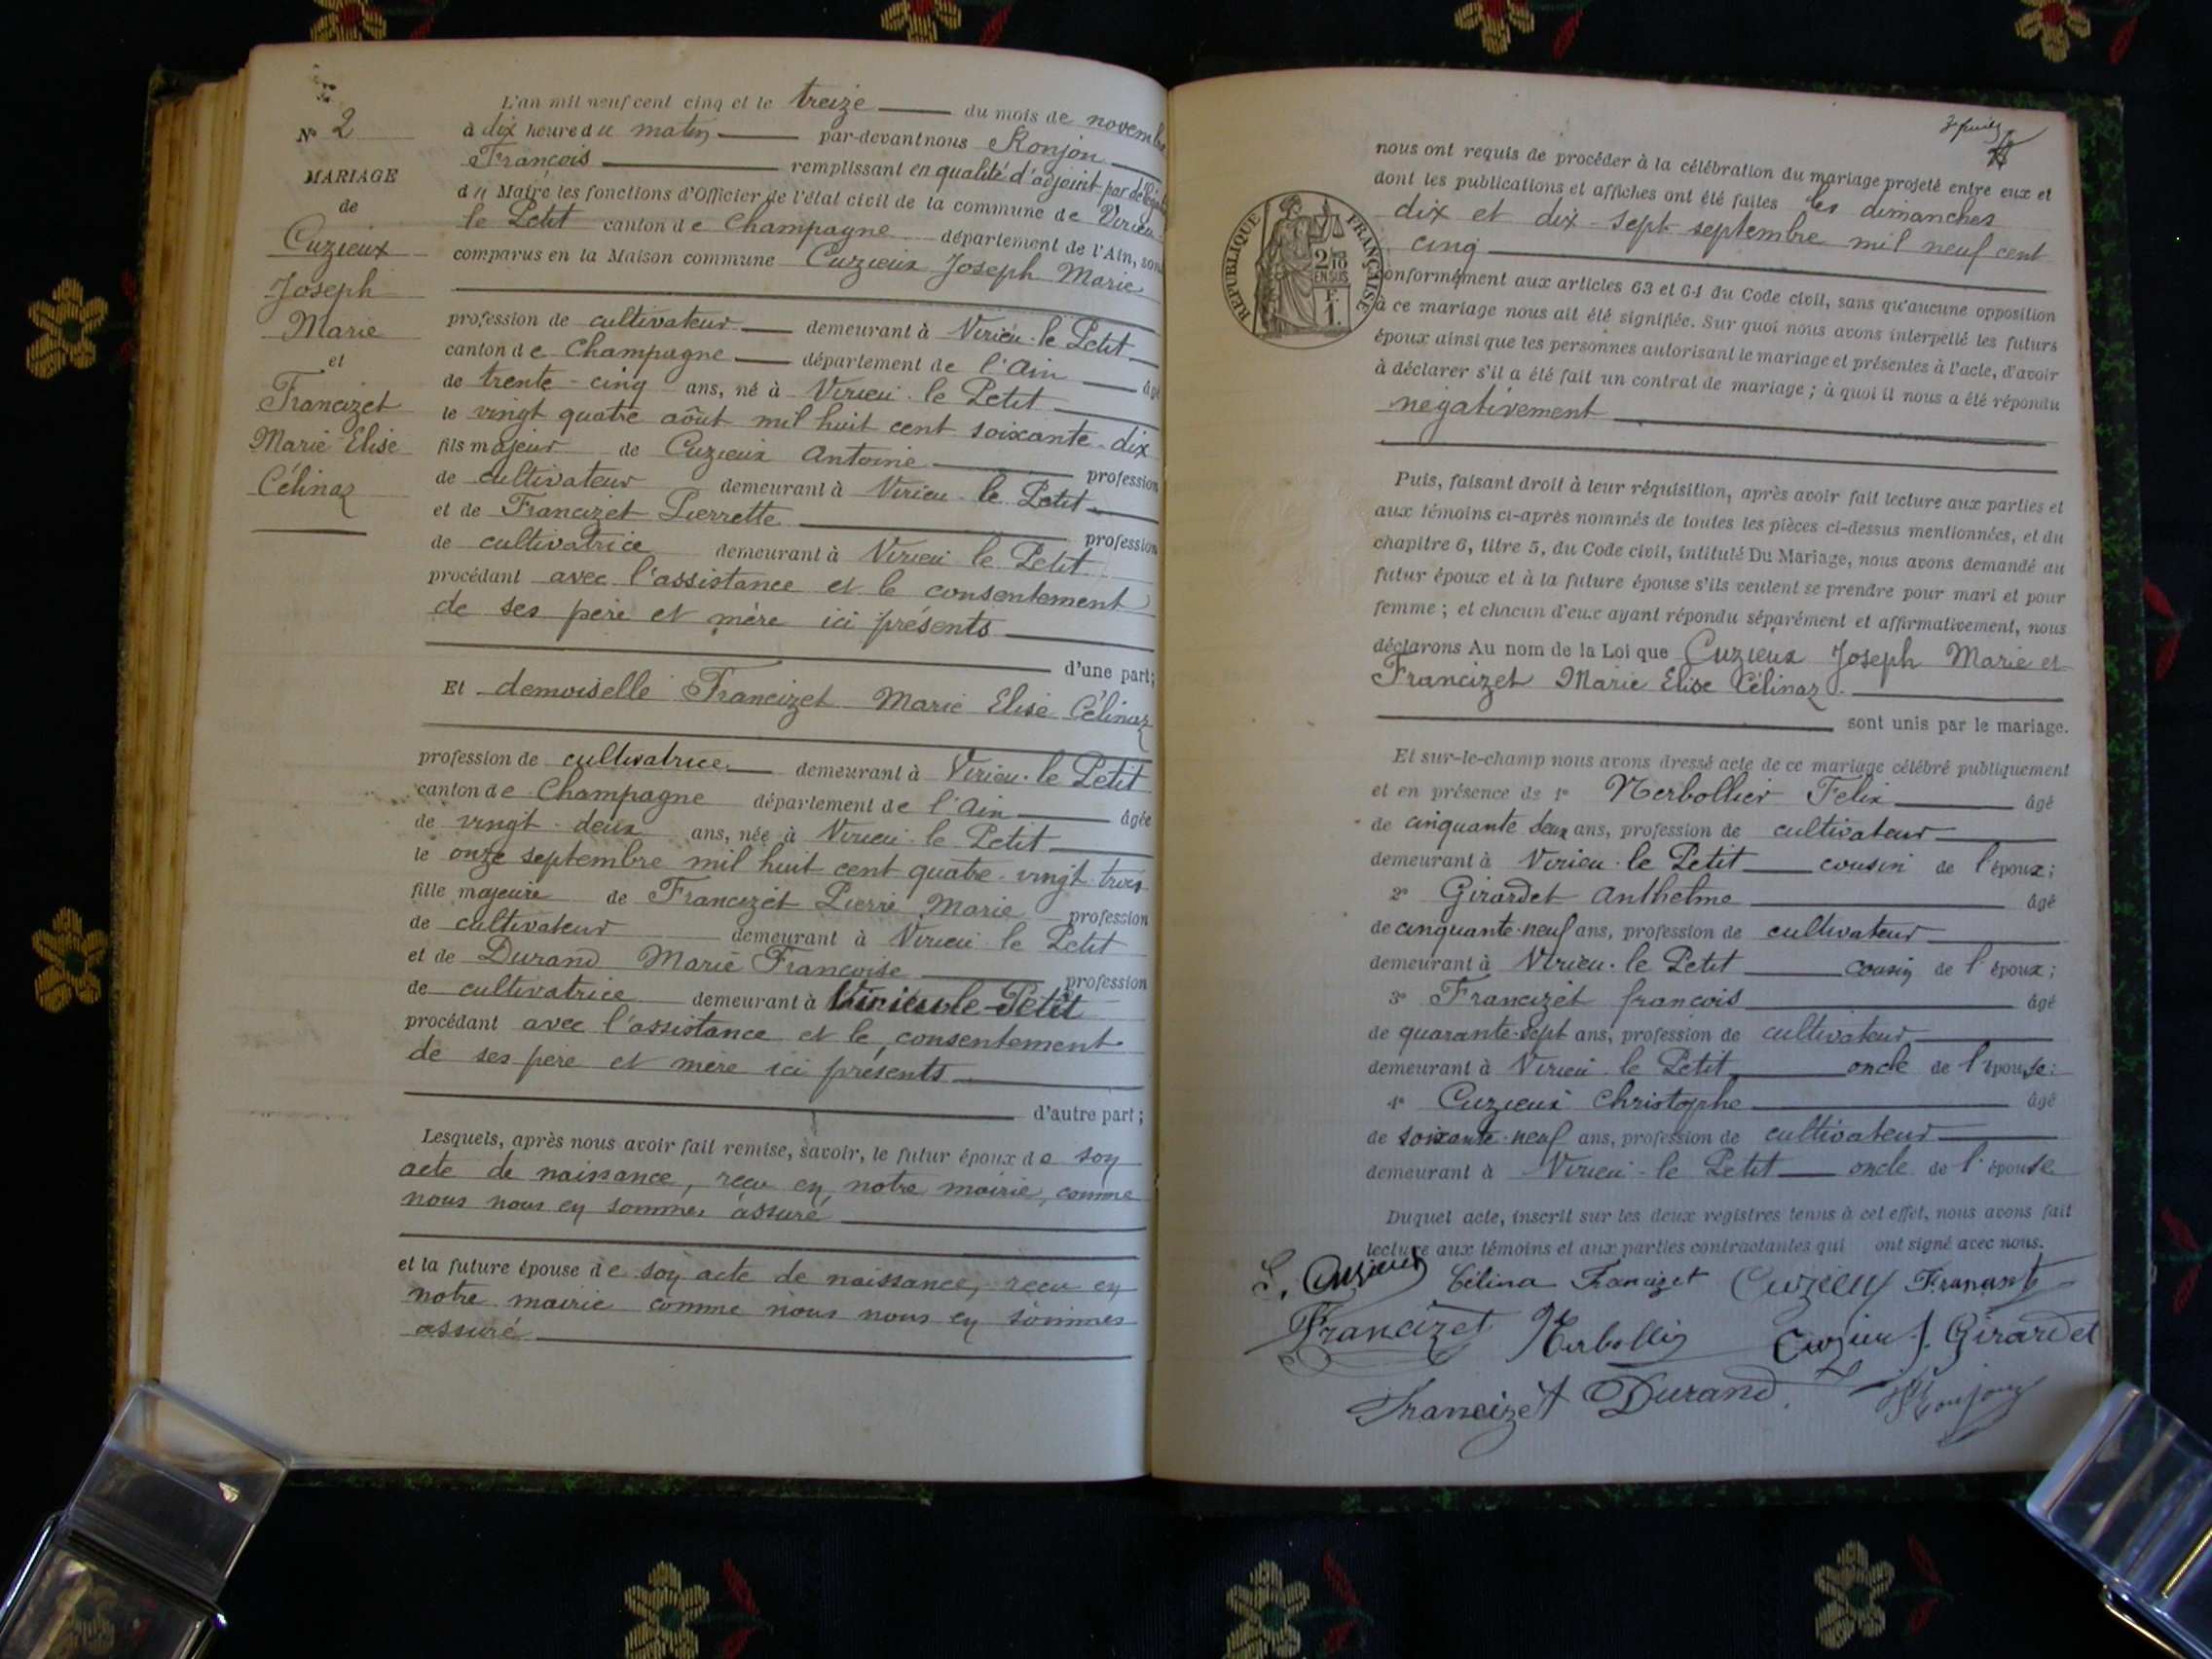 N° 2
MARIAGE
de
Cuzieux
Joseph
Marie
et
Francizet
Marie Elise
Célinaz
L'an mil neuf cent cinq et le treize du mois de novembre
à dix heure du matin par-devant nous Ronjon
François remplissant en qualité d'adjoint par
du Maire les fonctions d'Officier de l'état civil de la commune de Virieu
le Petit canton de Champagne département de l'Ain, sont
comparus en la Maison commune Cuzieux Joseph Marie
profession de cultivateur demeurant à Virieu-le Petit
canton de Champagne département de l'Ain âgé
de trente-cinq ans, né à Virieu-le Petit
le vingt quatre août mil huit cent soixante-dix
fils majeur de Cuzieux Antoine profession
de cultivateur demeurant à Virieu-le Petit
et de Francizet Pierrette profession
de cultivatrice demeurant à Virieu le Petit
procédant avec l'assistance et le consentement
de ses père et mère ici présents
d'une part;
Et demoiselle Francizet Marie Elise Célinaz
profession de cultivatrice demeurant à Virieu-le Petit
canton de Champagne département de l'Ain âgée
de vingt-deux ans, née à Virieu-le Petit
le onze septembre mil huit cent quatre-vingt-trois
fille majeure de Francizet Pierre Marie profession
de cultivateur demeurant à Virieu-le Petit
et de Durand Marie Françoise profession
de cultivatrice demeurant à Virieu-le-Petit
procédant avec l'assistance et le consentement
de ses père et mère ici présents
d'autre part;
Lesquels, après nous avoir fait remise, savoir, le futur époux de son
acte de naissance, reçu en notre mairie, comme
nous nous en sommes assuré
et la future épouse de son acte de naissance, reçu en
notre mairie comme nous nous en sommes
assuré
nous ont requis de procéder à la célébration du mariage projeté entre eux et
dont les publications et affiches ont été faites les dimanches
dix et dix-sept septembre mil neuf cent
cinq
RÉPUBLIQUE FRANÇAISE
2/10
EN SUS
F.
1.
conformément aux articles 63 et 64 du Code civil, sans qu'aucune opposition
à ce mariage nous ait été signifiée. Sur quoi nous avons interpellé les futurs
époux ainsi que les personnes autorisant le mariage et présentes à l'acte, d'avoir
à déclarer s'il a été fait un contrat de mariage; à quoi il nous a été répondu
négativement
Puis, faisant droit à leur réquisition, après avoir fait lecture aux parties et
aux témoins ci-après nommés de toutes les pièces ci-dessus mentionnées, et du
chapitre 6, titre 5, du Code civil, intitulé Du Mariage, nous avons demandé au
futur époux et à la future épouse s'ils veulent se prendre pour mari et pour
femme; et chacun d'eux ayant répondu séparément et affirmativement, nous
déclarons Au nom de la Loi que Cuzieux Joseph Marie et
Francizet Marie Elise Célinaz
sont unis par le mariage.
Et sur-le-champ nous avons dressé acte de ce mariage célébré publiquement
et en présence de 1° Nerbollier Felix âgé
de cinquante deux ans, profession de cultivateur
demeurant à Virieu-le Petit cousin de l'époux;
2° Girardet Anthelme âgé
de cinquante-neuf ans, profession de cultivateur
demeurant à Virieu-le Petit cousin de l'époux;
3° Francizet françois âgé
de quarante-sept ans, profession de cultivateur
demeurant à Virieu le Petit oncle de l'épouse;
4° Cuzieux Christophe âgé
de soixante-neuf ans, profession de cultivateur
demeurant à Virieu-le Petit oncle de l'épouse
Duquel acte, inscrit sur les deux registres tenus à cet effet, nous avons fait
lecture aux témoins et aux parties contractantes qui ont signé avec nous.
Cuzieux Célina Francizet Cuzieux
Francizet Nerbollier Cuzieux Girardet
Francizet Durand Ronjon